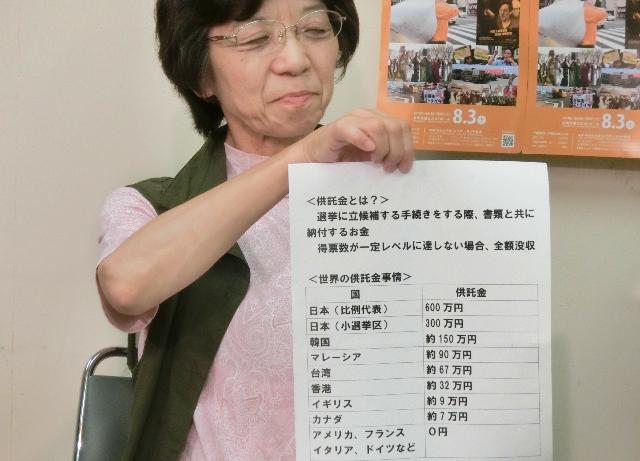 8.3
8.3
＜供託金とは？＞
選挙に立候補する手続きをする際、書類と共に
納付するお金
得票数が一定レベルに達しない場合、全額没収
＜世界の供託金事情＞
国 供託金
日本（比例代表） 600万円
日本（小選挙区） 300万円
韓国 約150万円
マレーシア 約90万円
台湾 約67万円
香港 約32万円
イギリス 約9万円
カナダ 約7万円
アメリカ、フランス 0円
イタリア、ドイツなど